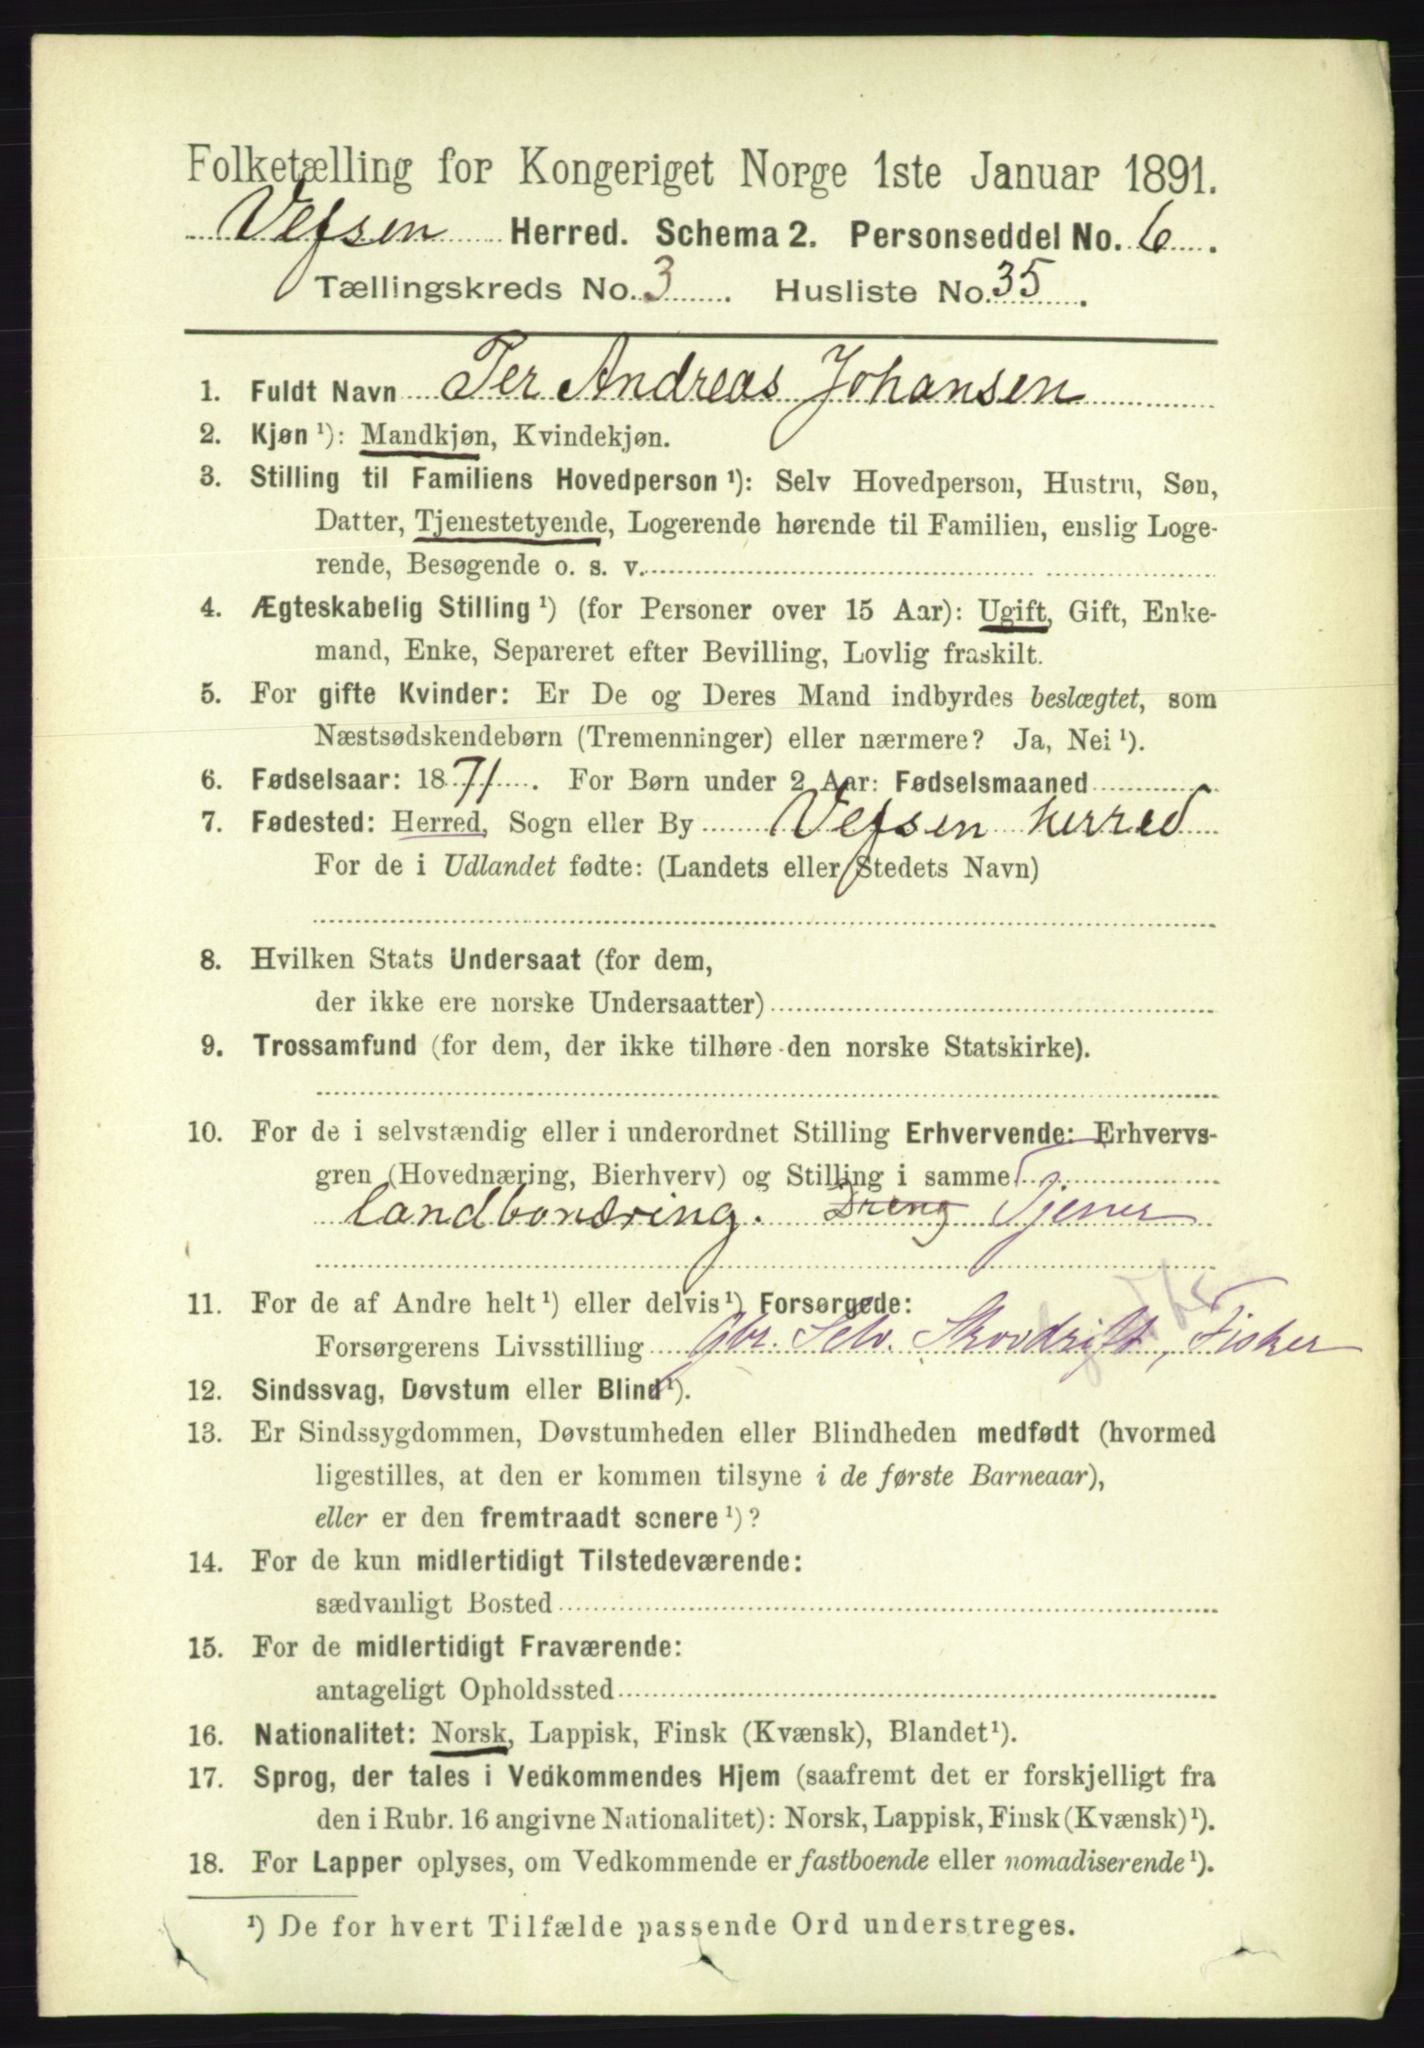 Folketælling for Kongeriget Norge 1ste Januar 1891.
Vefsen Herred. Schema 2. Personseddel No. 6.
Tællingskreds No. 3. Husliste No. 35.
1. Fuldt Navn Per Andreas Johansen
2. Kjøn ¹): Mandkjøn, Kvindekjøn.
3. Stilling til Familiens Hovedperson ¹): Selv Hovedperson, Hustru, Søn,
Datter, Tjenestetyende, Logerende hørende til Familien, enslig Loge-
rende, Besøgende o. s. v.
4. Ægteskabelig Stilling ¹) (for Personer over 15 Aar): Ugift, Gift, Enke-
mand, Enke, Separeret efter Bevilling, Lovlig fraskilt.
5. For gifte Kvinder: Er De og Deres Mand indbyrdes beslægtet, som
Næstsødskendebørn (Tremenninger) eller nærmere? Ja, Nei ¹).
6. Fødselsaar: 1871. For Børn under 2 Aar: Fødselsmaaned
7. Fødested: Herred, Sogn eller By Vefsen herred
For de i Udlandet fødte: (Landets eller Stedets Navn)
8. Hvilken Stats Undersaat (for dem,
der ikke ere norske Undersaatter)
9. Trossamfund (for dem, der ikke tilhøre den norske Statskirke).
10. For de i selvstændig eller i underordnet Stilling Erhvervende: Erhvervs-
gren (Hovednæring, Bierhverv) og Stilling i samme
landbonæring. Dreng Tjener
11. For de af Andre helt ¹) eller delvis ¹) Forsørgede:
Forsørgerens Livsstilling Gbr. Selv. Skovdrift, Fisker
12. Sindssvag, Døvstum eller Blind ¹).
13. Er Sindssygdommen, Døvstumheden eller Blindheden medfødt (hvormed
ligestilles, at den er kommen tilsyne i de første Barneaar),
eller er den fremtraadt senere ¹)?
14. For de kun midlertidigt Tilstedeværende:
sædvanligt Bosted
15. For de midlertidigt Fraværende:
antageligt Opholdssted
16. Nationalitet: Norsk, Lappisk, Finsk (Kvænsk), Blandet ¹).
17. Sprog, der tales i Vedkommendes Hjem (saafremt det er forskjelligt fra
den i Rubr. 16 angivne Nationalitet): Norsk, Lappisk, Finsk (Kvænsk) ¹).
18. For Lapper oplyses, om Vedkommende er fastboende eller nomadiserende ¹).
¹) De for hvert Tilfælde passende Ord understreges.